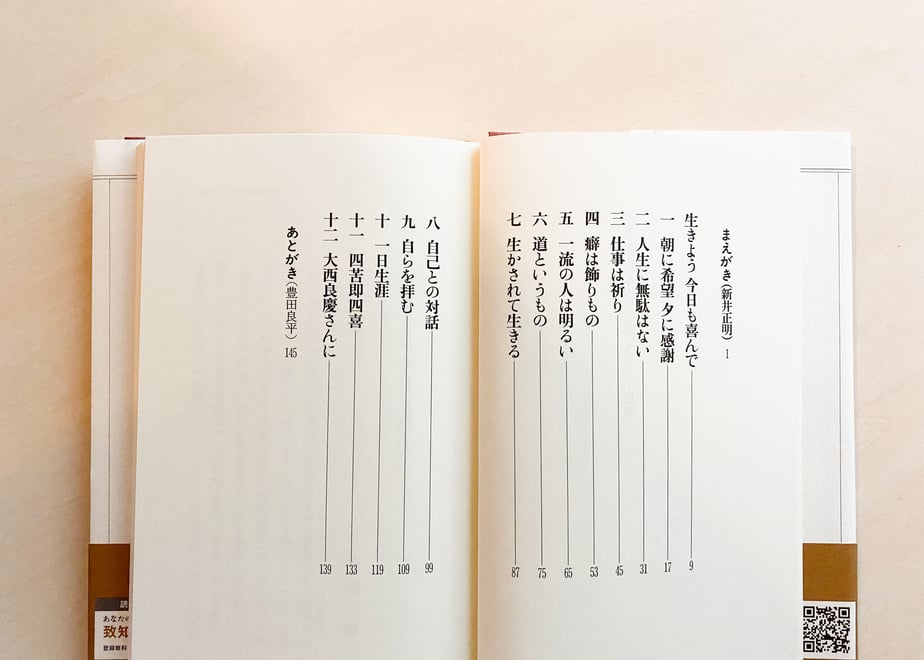 まえがき(新井正明) 1
生きよう 今日も喜んで 9
一 朝に希望 夕に感謝 17
二 人生に無駄はない 31
三 仕事は祈り 45
四 癖は飾りもの 53
五 一流の人は明るい 65
六 道というもの 75
七 生かされて生きる 87
八 自己との対話 99
九 自らを拝む 109
十 一日生涯 119
十一 四苦即四喜 133
十二 大西良慶さんに 139
あとがき(豊田良平) 145
読
あなたの
致知
登録無料